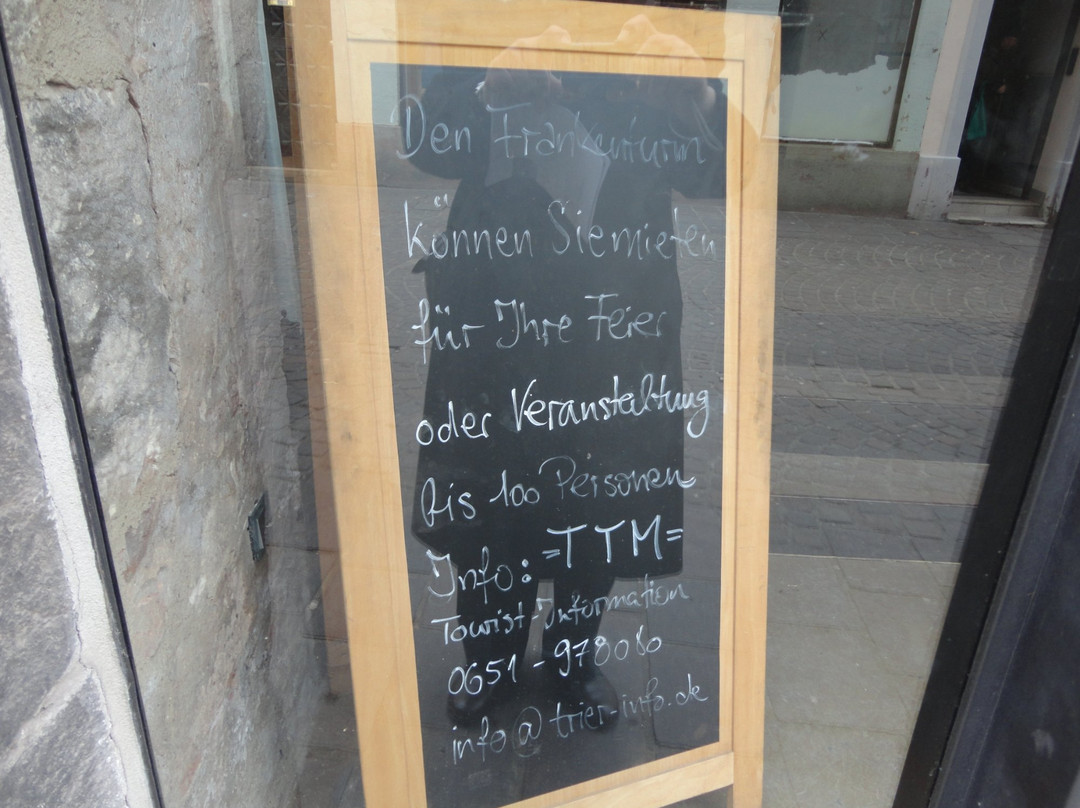 Den Frankenturm
können Sie mieten
für Ihre Feier
oder Veranstaltung
bis 100 Personen
Info: =TTM=
Tourist-Information
0651-978080
info@trier-info.de